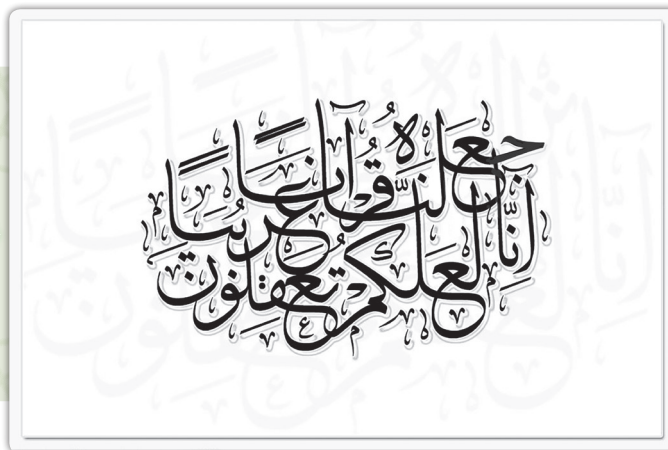 إنّا جعلنٰه قرآنًا عربيًّا
لعلّكم تعقلون